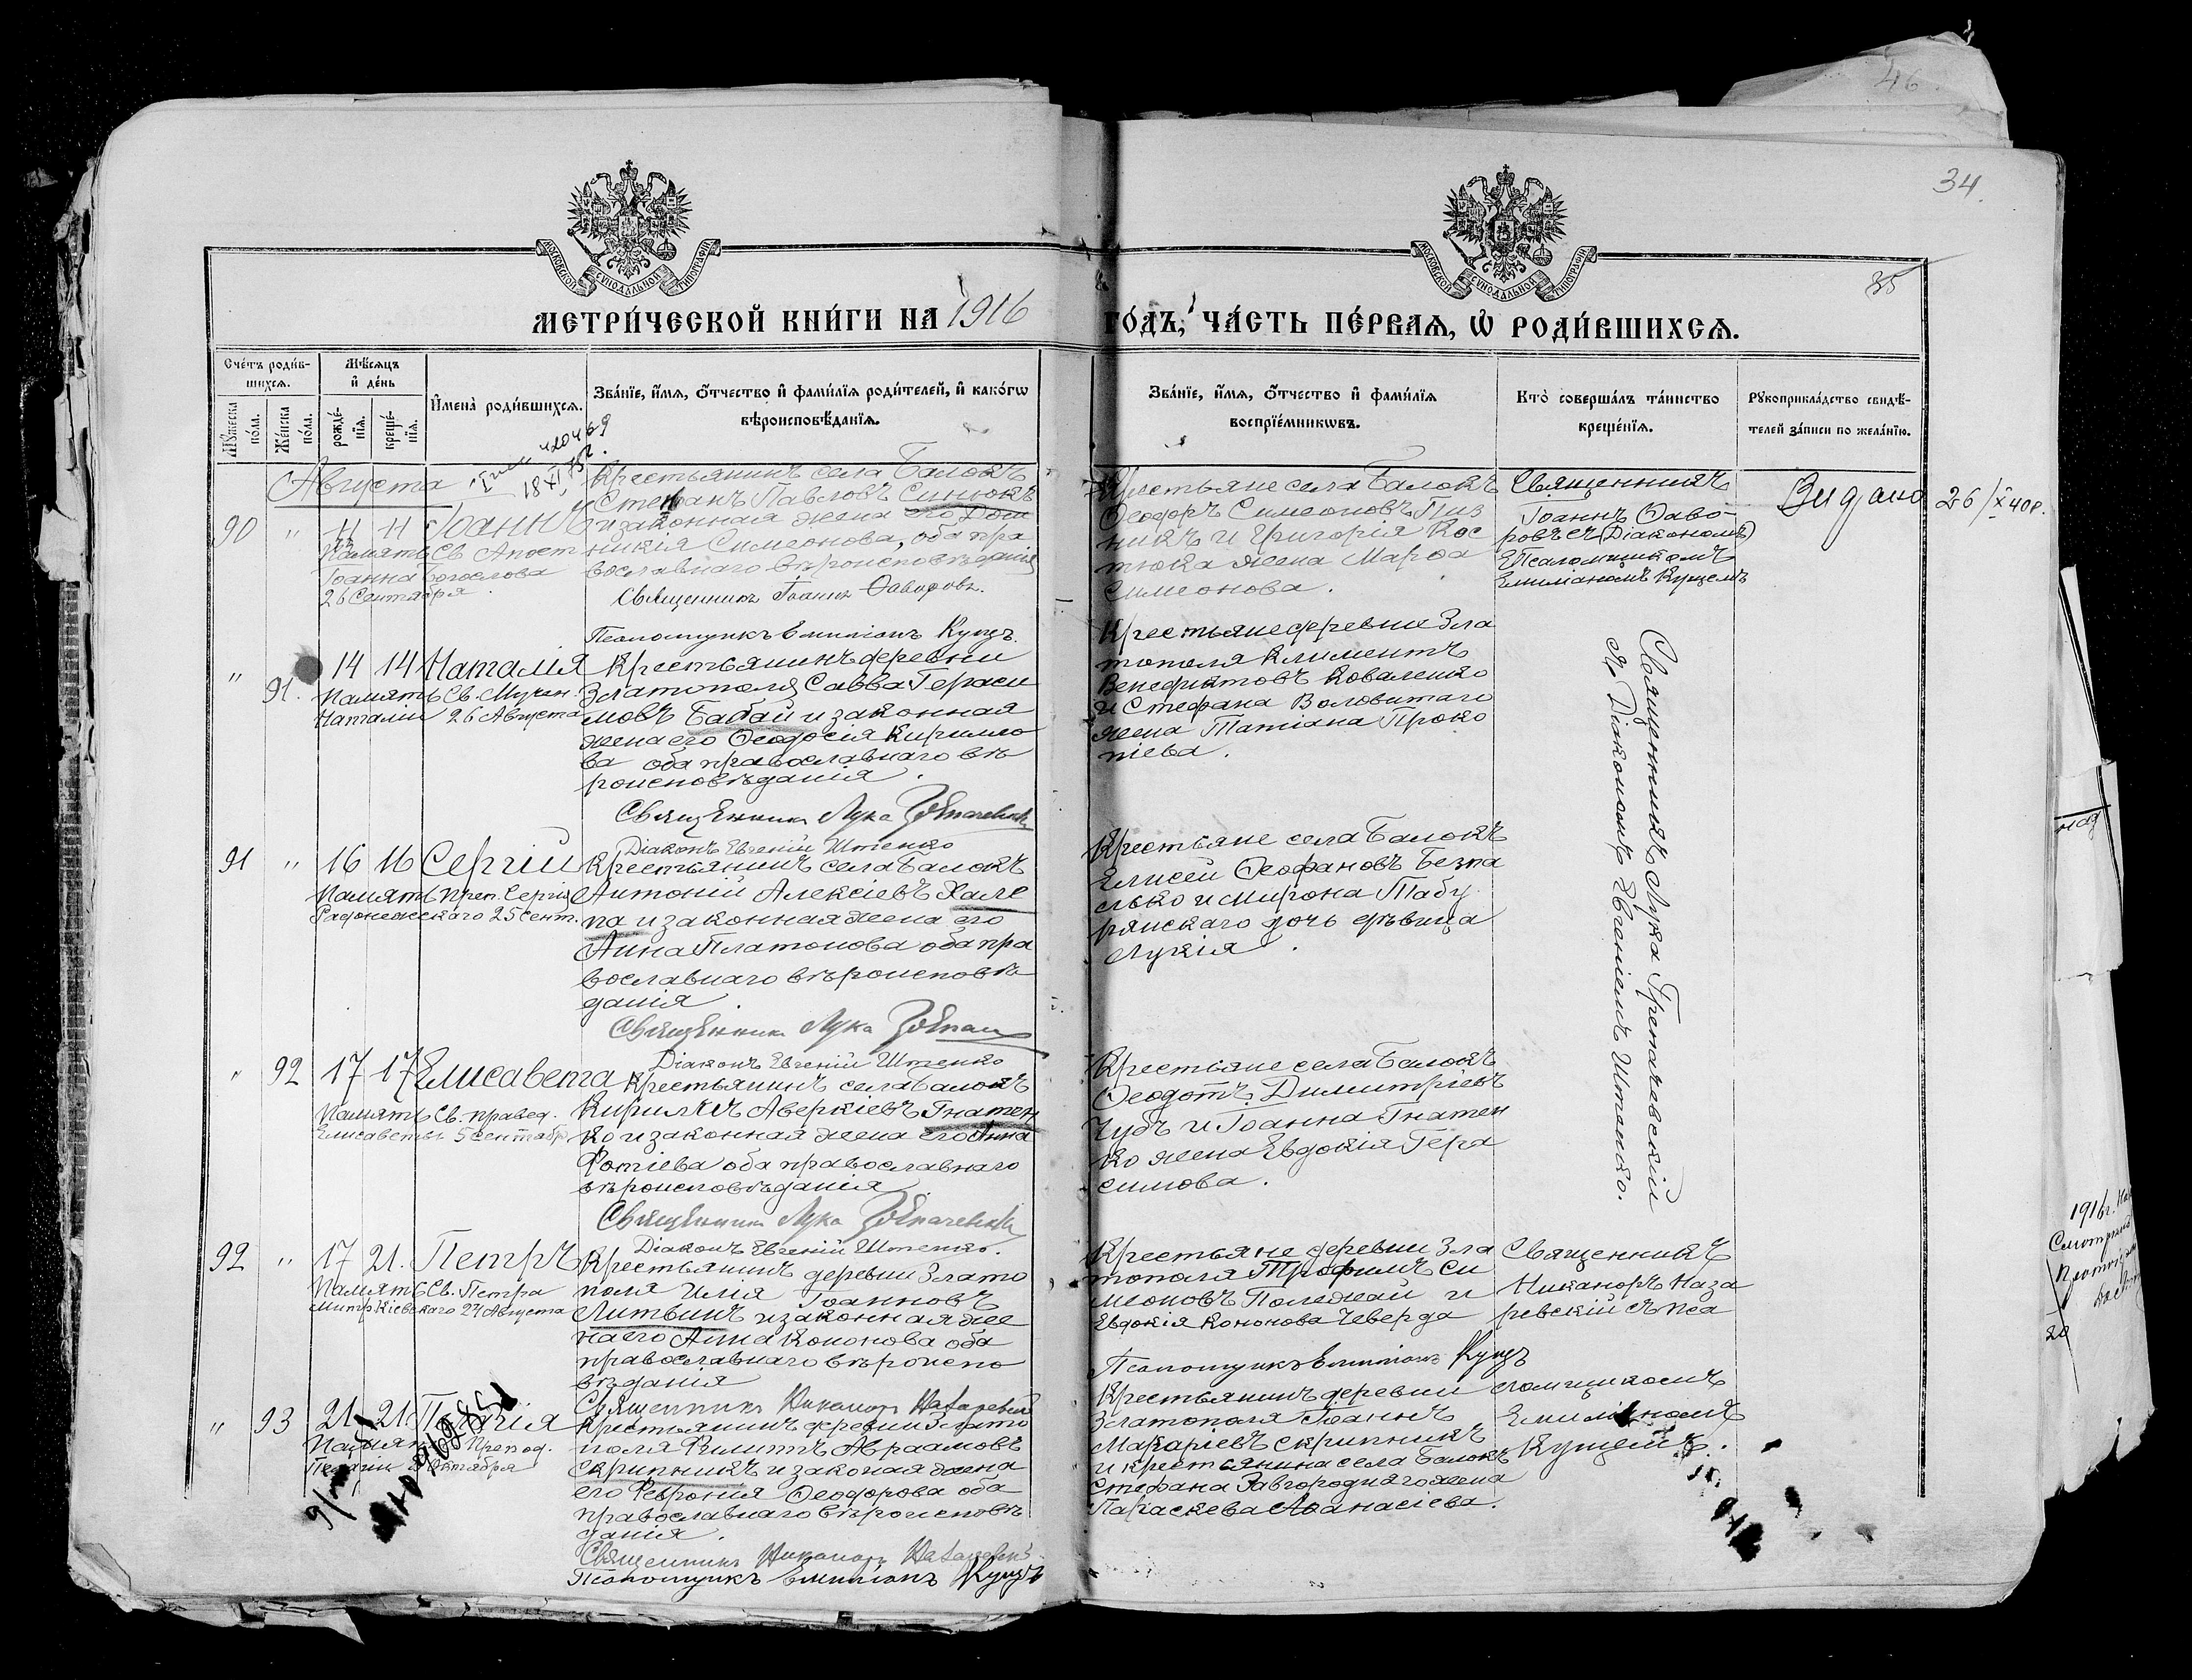 46
34.
35
МОСКОВСКОЙ СѴНОДАЛЬНОЙ ТИПОГРАФІИ
МОСКОВСКОЙ СѴНОДАЛЬНОЙ ТИПОГРАФІИ
МЕТРИ́ЧЕСКОЙ КНИ́ГИ НА 1916 ГО́ДЪ, ЧА́СТЬ ПЕ́РВАЯ, Ѡ РОДИ́ВШИХСЯ.
Сче́тъ роди́в-
шихся.
Мѣ́сяцъ
и҆ де́нь
Мꙋ́жеска по́ла.
Же́нска по́ла.
рожде́-нїя.
креще́-нїя.
И҆мена̀ роди́вшихся.
Зва́нїе, и҆́мя, ѻ҆́тчество и҆ фами́лїя роди́телей, и҆ како́гѡ
вѣроисповѣ́данїя.
Зва́нїе, и҆́мя, ѻ҆́тчество и҆ фами́лїя
воспрїе́мникѡвъ.
Кто̀ соверша́лъ та́инство
креще́нїя.
Рꙋкоприкла́дство свидѣ́-
телей за́писи по жела́нїю.
Августа
420469
18 XI 75г.
90 " 11 11 Іоаннъ
Память Св. Апост
Іоанна Богослова
26 Сентября.
Крестьянинъ села Балокъ
Стефанъ Павловъ Синюкъ
и законная жена его Дом
никія Симеонова, оба пра
вославнаго вѣроисповѣданія
Священникъ Іоаннъ Ѳаворовъ.
Псаломщикъ Емиліанъ Кущъ.
Крестьяне села Балокъ
Ѳеодоръ Симеоновъ Пиз
никъ и Григорія Кос
тюка жена Марѳа
Симеонова.
Священникъ
Іоаннъ Ѳаво-
ровъ съ (Діакономъ)
Псаломщикомъ
Емиліаномъ Кущемъ
Видано 26/X 40р.
" 91. 14 14 Наталія
Память Св. Мучен.
Наталіи 26 Августа
Крестьянинъ деревни
Златополя Савва Гераси
мовъ Бабай и законная
жена его Ѳеодосія Кирило
ва оба православнаго вѣ
роисповѣданія.
Священникъ Лука Греначевскій
Діаконъ Евгеній Штепко
Крестьяне деревни Зла
тополя Климентъ
Венедиктовъ Коваленко
и Стефана Воловитаго
жена Татіана Проко
піева.
Священникъ Лука Греначевскій
съ Діакономъ Евгеніемъ Штепко.
91 " 16 16 Сергій
Память Преп. Сергія
Радонежскаго 25 Сент.
Крестьянинъ села Балокъ
Антоній Алексіевъ Хале
па и законная жена его
Анна Платонова оба пра
вославнаго вѣроисповѣ
данія.
Священникъ Лука
Діаконъ Евгеній Штепко
Крестьяне села Балокъ
Елисей Ѳеофановъ Безпа
лько и Мирона Табу
рянскаго дочь дѣвица
Лукія.
" 92 17 17 Елисавета
Память Св. правед.
Елисаветы 5 Сентябр
Крестьянинъ села Балокъ
Кириллъ Аверкіевъ Гнатен
ко и законная жена его Анна
Фотіева оба православнаго
вѣроисповѣданія.
Священникъ Лука Греначевскій
Діаконъ Евгеній Штепко.
Крестьяне села Балокъ
Ѳеодотъ Димитріевъ
Чубъ и Іоанна Гнатен
ко жена Евдокія Гера
симова.
92 " 17 21. Петръ
Память Св. Петра
Митр. Кіевскаго 24 Августа
Крестьянинъ деревни Злато
поля Илія Іоанновъ
Литвинъ и законная же
на его Анна Кононова оба
православнаго вѣроиспо
вѣданія
Священникъ Никаноръ Назаревскій
Псаломщикъ Емиліанъ Кущъ
Крестьяне деревни Зла
тополя Трофимъ Си
меоновъ Полежай и
Евдокія Кононова Чеверда
Священникъ
Никаноръ Наза
ревскій съ Пса
ломщикомъ
Емиліаномъ
Кущемъ.
" 93 21. 21. Пелагія
Память Препод.
Пелагіи 8 Октября
Крестьянинъ деревни Злато
поля Филиппъ Авраамовъ
Скрипникъ и законая жена
его Феврония Ѳеодорова оба
православнаго вѣроисповѣ
данія.
Священникъ Никаноръ Назаревскій
Псаломщикъ Емиліанъ Кущъ
Крестьянинъ деревни
Златополя Іоаннъ
Макаріевъ Скрипникъ
и крестьянина села Балокъ
Стефана Завгородняго жена
Параскева Аѳанасіева.
1916г.